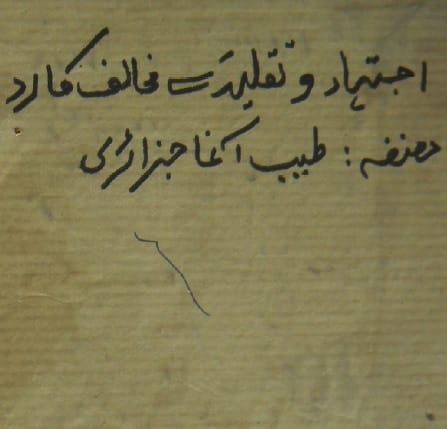 اجتہاد و تقلید کے مخالف کا رد
مصنفہ : طیب آغا جزائری